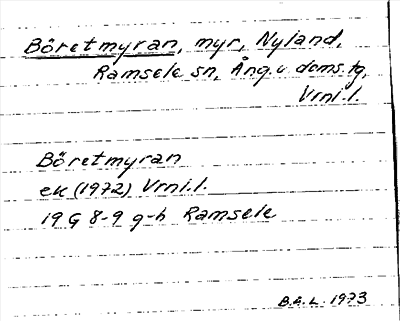 Böretmyran, myr, Nyland,
Ramsele sn, Ång. v. doms.tg,
Vrnl.l.
Böretmyran
ek (1972) Vrnl.l.
19 G 8-9 g-h Ramsele
B.E.L. 1973